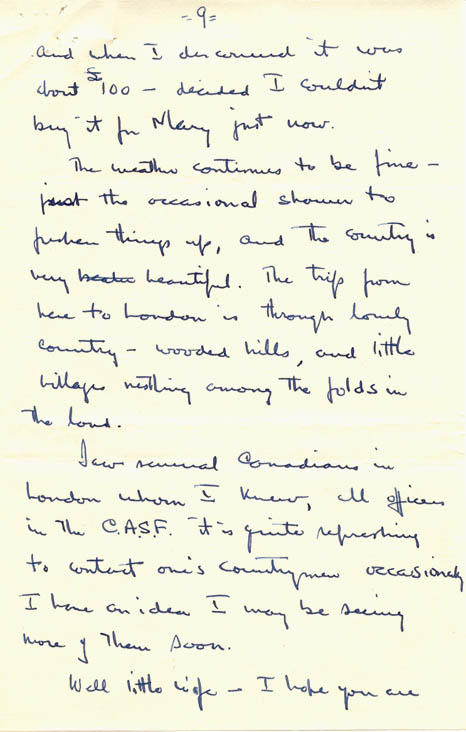 =9=
and when I discovered it was
about $100 – decided I couldn't
buy it for Mary just now.
The weather continues to be fine –
just the occasional shower to
freshen things up, and the country is
very beautiful. The trip from
here to London is through lovely
country – wooded hills, and little
villages nestling among the folds in
the land.
Saw several Canadians in
London whom I knew, all officers
in the C.A.S.F. It is quite refreshing
to contact one's countrymen occasionally
I have an idea I may be seeing
more of them soon.
Well little wife – I hope you are